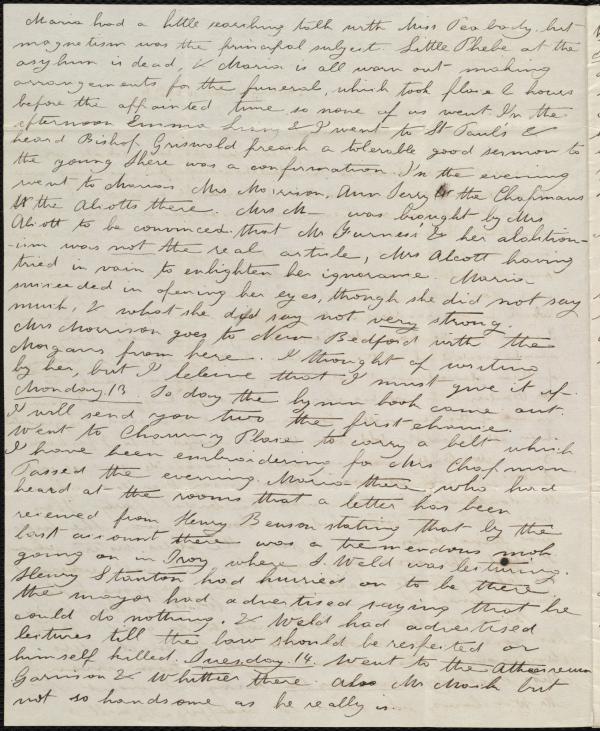 Maria had a little searching talk with Miss Peabody, but
magnetism was the principal subject. Little Phebe at the
asylum is dead, & Maria is all worn out making
arrangements for the funeral, which took place 2 hours
before the appointed time so none of us went. In the
afternoon Emma & I went to St Paul's &
heard Bishop Griswold preach a tolerable good sermon to
the young. There was a confirmation. In the evening
went to Marias. Mrs Morrison, Ann Terry & the Chapmans
& the Alcotts there. Mrs M— was brought by Mrs
Alcott to be convinced that Mr Furness' & her abolition-
-ism was not the real article, Mrs Alcott having
tried in vain to enlighten her ignorance. Maria
succeeded in opening her eyes, though she did not say
much, & what she did say not very strong.
Mrs Morrison goes to New Bedford with the
Morgans from here. I thought of writing
by her, but I believe that I must give it up.
Monday 13 To day the hymn book came out.
I will send you two the first chance.
Went to Chauncy Place to carry a belt which
I have been embroidering for Mrs Chapman.
Passed the evening. Maria there who had
heard at the rooms that a letter has been
received from Henry Benson stating that by the
last account there was a tremendous mob
going on in Troy where T. Weld was lecturing.
Henry Stanton had hurried on to be there
the mayor had advertised saying that he
could do nothing, & Weld had advertised
lectures till the law should be respected or
himself killed. Tuesday. 14. Went to the Atheneum
Garrison & Whittier there. Also Mr but
not so handsome as he really is.